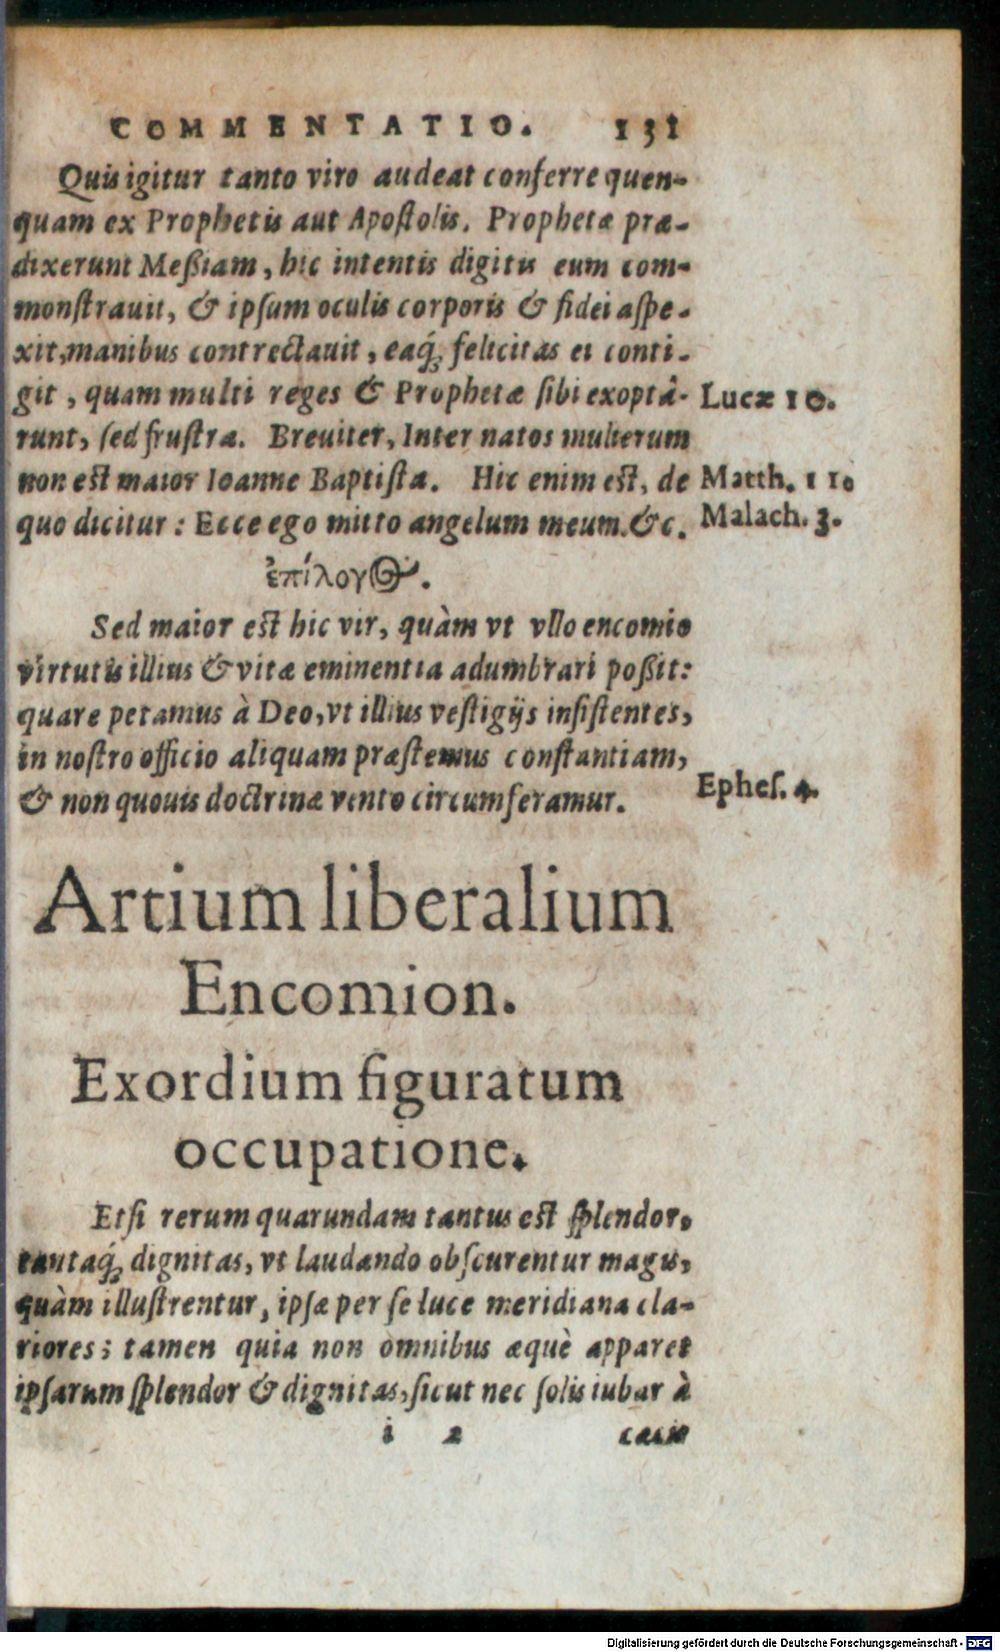 COMMENTATIO. 131
Quis igitur tanto viro audeat conferre quen-
quam ex Prophetis aut Apoſtolis. Prophetæ præ-
dixerunt Meßiam, hic intentis digitis eum com-
monſtrauit, & ipſum oculis corporis & fidei aſpe-
xit, manibus contrectauit, eaq́; felicitas ei conti-
git, quam multi reges & Prophetæ ſibi exoptâ- Lucæ 10.
runt, ſed fruſtra. Breuiter, Inter natos mulierum
non eſt maior Ioanne Baptiſta. Hic enim eſt, de Matth. 11.
quo dicitur: Ecce ego mitto angelum meum. &c. Malach. 3.
ἐπίλογος.
Sed maior eſt hic vir, quàm vt vllo encomio
virtutis illius & vitæ eminentia adumbrari poßit:
quare petamus à Deo, vt illius veſtigijs inſiſtentes,
in noſtro officio aliquam præſtemus conſtantiam,
& non quouis doctrinæ vento circumferamur. Epheſ. 4.
Artium liberalium
Encomion.
Exordium figuratum
occupatione.
Etſi rerum quarundam tantus eſt ſplendor,
tantaq́; dignitas, vt laudando obſcurentur magis,
quàm illuſtrentur, ipſæ per ſe luce meridiana cla-
riores; tamen quia non omnibus æquè apparet
ipſarum ſplendor & dignitas, ſicut nec ſolis iubar à
i 2 cæcis
Digitalisierung gefördert durch die Deutsche Forschungsgemeinschaft - DFG